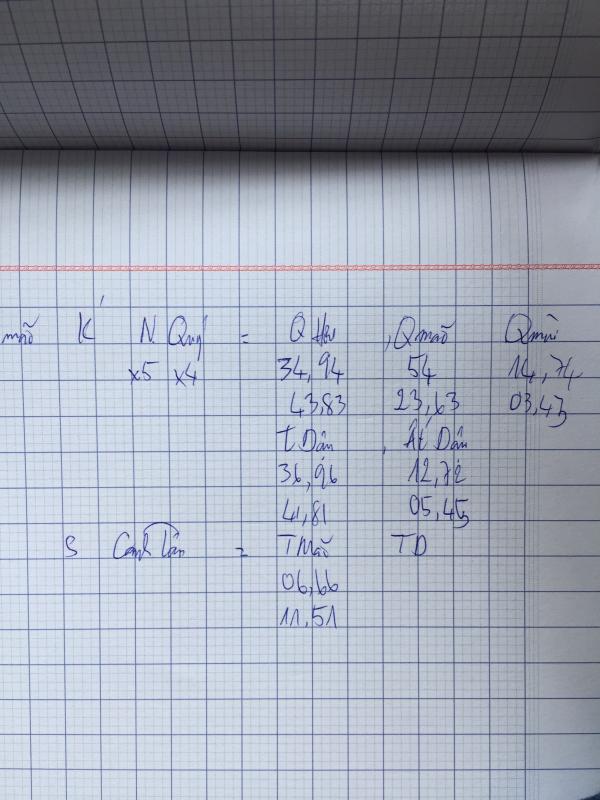 mão K N. Quý = Q Hợi , Q mão Q mùi
x5 x4 34,94 54 14,74
43,83 23,63 03,43
T Dần , Ất Dần
36,96 12,72
41,81 05,45
S Canh = T Mão TD
06,66
11,51